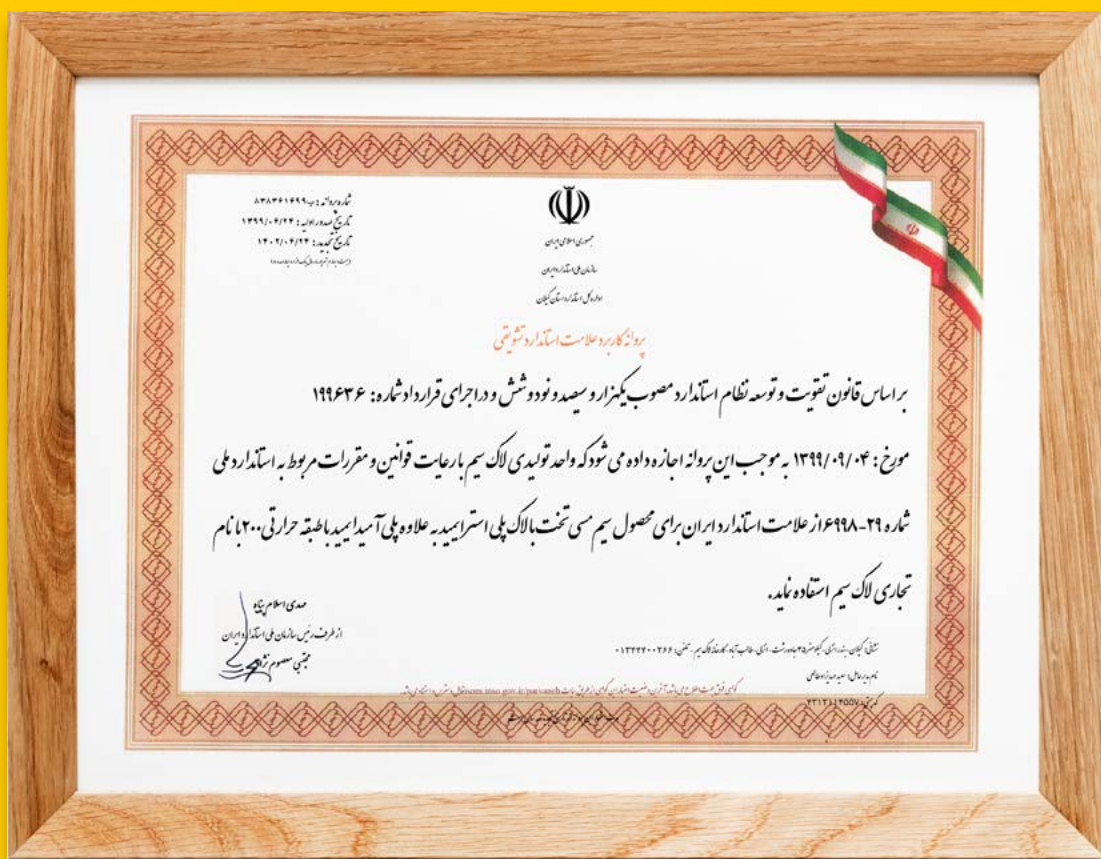 شماره پروانه: ب۸۳۸۳۶۱۶۹۹
تاریخ صدور اولیه: ۱۳۹۹/۰۶/۲۴
تاریخ تجدید: ۱۴۰۲/۰۶/۲۴
جمهوری اسلامی ایران
سازمان ملی استاندارد ایران
اداره کل استاندارد استان گیلان
پروانه کاربرد علامت استاندارد تشویقی
بر اساس قانون تقویت و توسعه نظام استاندارد مصوب یکهزار و سیصد و نود و شش و در اجرای قرارداد شماره: ۱۹۹۶۳۶
مورخ: ۱۳۹۹/۰۹/۰۴ به موجب این پروانه اجازه داده می شود که واحد تولیدی لاک سیم با رعایت قوانین و مقررات مربوط به استاندارد ملی
شماره ۲۹-۶۹۹۸ از علامت استاندارد ایران برای محصول سیم مسی تخت با لاک پلی استر ایمید به علاوه پلی آمید ایمید با طبقه حرارتی ۲۰۰ با نام
تجاری لاک سیم استفاده نماید.
مهدی اسلام پناه
از طرف رئیس سازمان ملی استاندارد ایران
مجتبی معصوم نژاد
نشانی: گیلان، بندر انزلی، کیلومتر ۲۵ جاده رشت، انزلی، طالب آباد، کارخانه لاک سیم، تلفن: ۰۱۳۴۴۴۰۰۲۶۶
نام مدیر عامل:
گواهی فوق جهت اطلاع می باشد، آخرین وضعیت اعتبار این گواهی از طریق سایت isom.inso.gov.ir/parvaneh قابل دسترس و استناد می باشد.